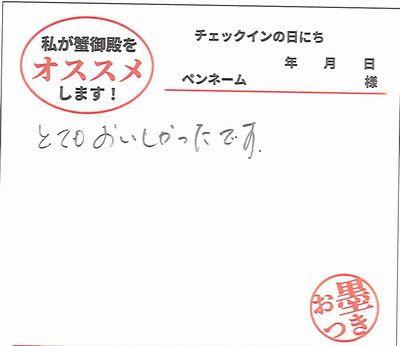 私が蟹御殿を
オススメ
します！
チェックインの日にち
年 月 日
ペンネーム 様
とてもおいしかったです。
お墨
つき